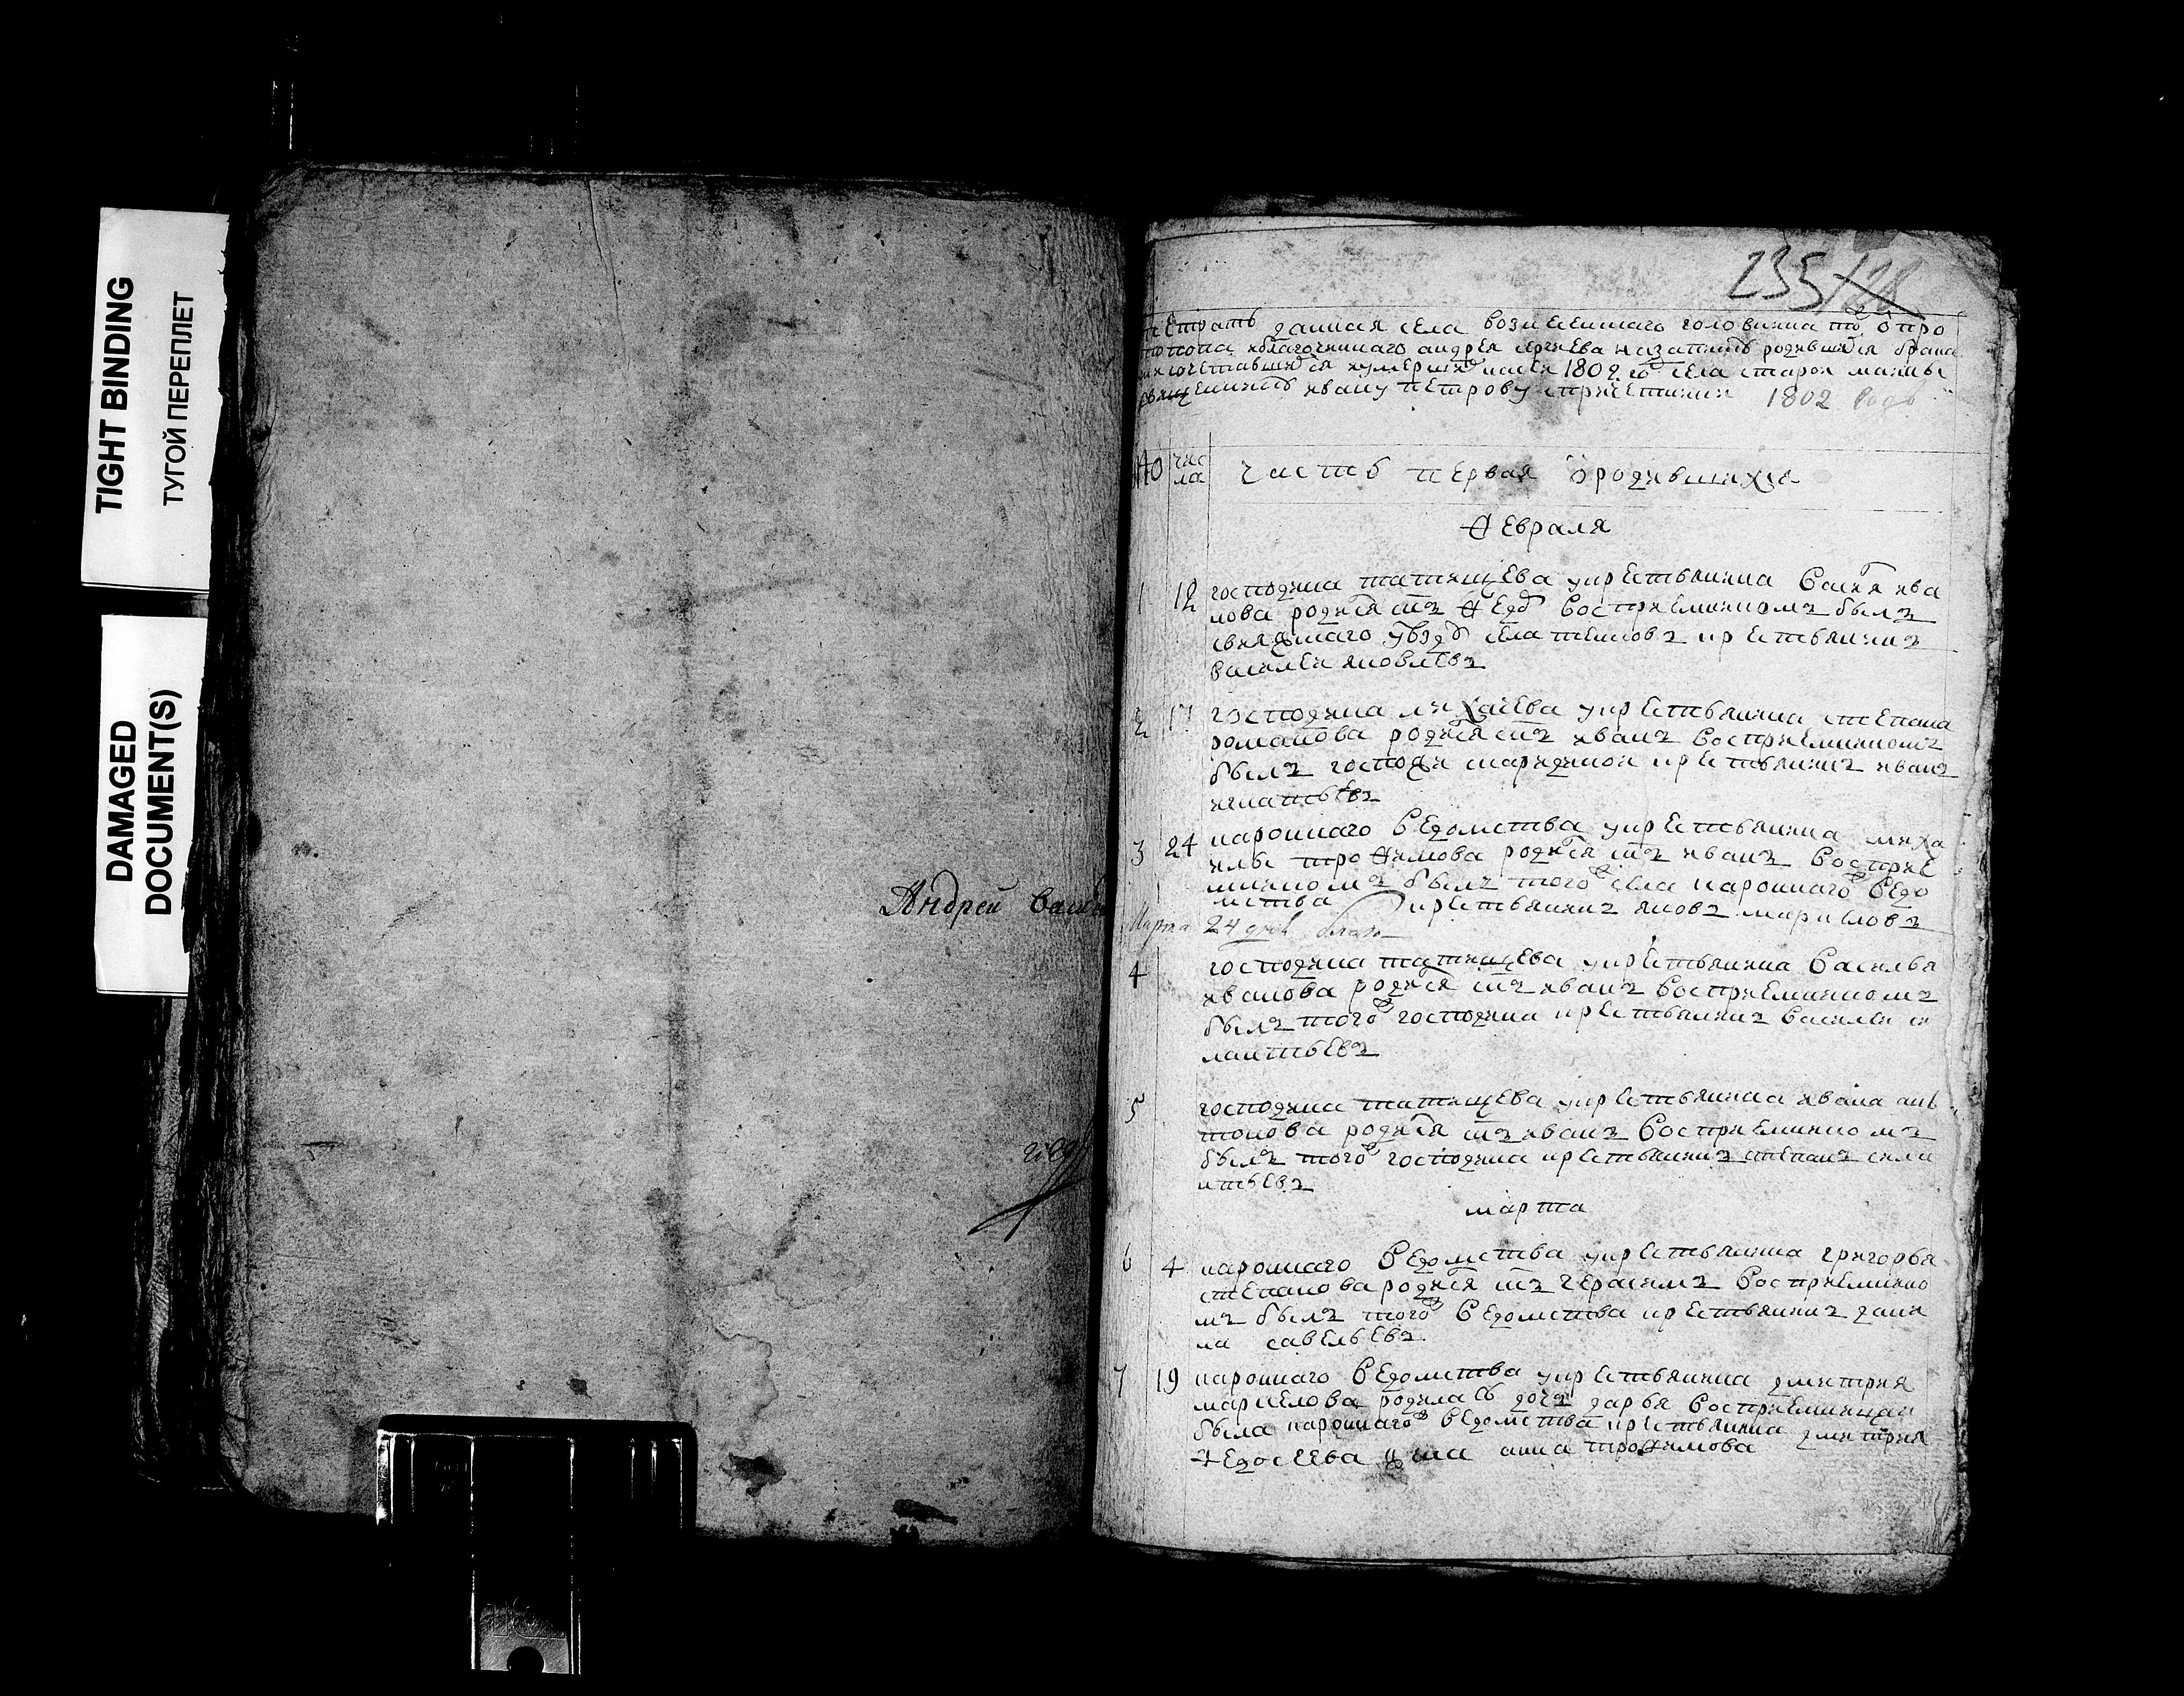 TIGHT BINDING
ТУГОЙ ПЕРЕПЛЕТ
DAMAGED
DOCUMENT(S)
Андрей
235
тетрать данная села вознесенскаго головина отъ про
топопа благочиннаго андрея сергиева на записъ родившихся брака
сочетавшихся и умершихъ на сей 1802 годъ села старои маины
священникъ ивану петрову спричетники 1802 годъ
чис
ла
часть первая о родившихся
февраля
1 12 господина татищева у крестьянина василья ива
нова родися сынъ восприемникомъ былъ
уезду села крестьянинъ
василеи яковлевъ
2 17 господина у крестьянина степана
романова родися сынъ иванъ восприемникомъ
былъ крестьянинъ иванъ
игнатьевъ
3 24 коронного ведомства у крестьянина миха
илы трофимова родися сынъ иванъ восприе
мникомъ былъ того села коронного ведо
мства крестьянинъ яковъ маркеловъ
Марта 24 дня
4 господина татищева у крестьянина василья
иванова родися сынъ иванъ восприемникомъ
былъ того господина крестьянинъ василеи си
лантьевъ
5 господина татищева у крестьянина ивана ан
тонова родися сынъ иванъ восприемникомъ
былъ того господина крестьянинъ степанъ
марта
6 4 коронного ведомства у крестьянина григорья
степанова родися сынъ герасимъ восприемнико
мъ былъ того ведомства крестьянинъ дани
ла савельевъ
7 19 коронного ведомства у крестьянина дмитрия
маркелова родилась дочь дарья восприемницаи
была коронного ведомства крестьянина дмитрия
федосеева жена анна трофимова